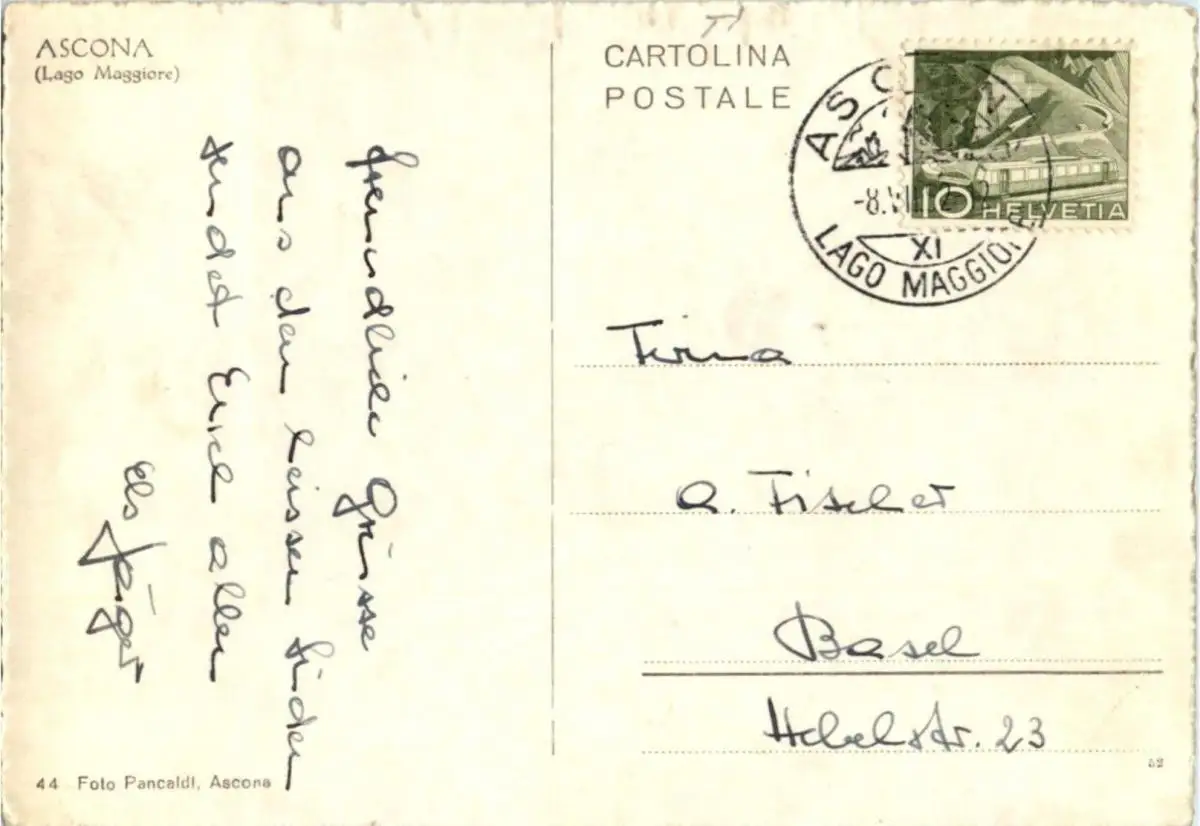 ASCONA
(Lago Maggiore)
Freundliche Grüsse
aus dem heissen Süden
sendet Euch allen
Els Jäger
44 Foto Pancaldi, Ascona
CARTOLINA
POSTALE
ASCO
-8.VI
XI
LAGO MAGGIORE
10 HELVETIA
Firma
A. Fischer
Basel
Hebelstr. 23
52